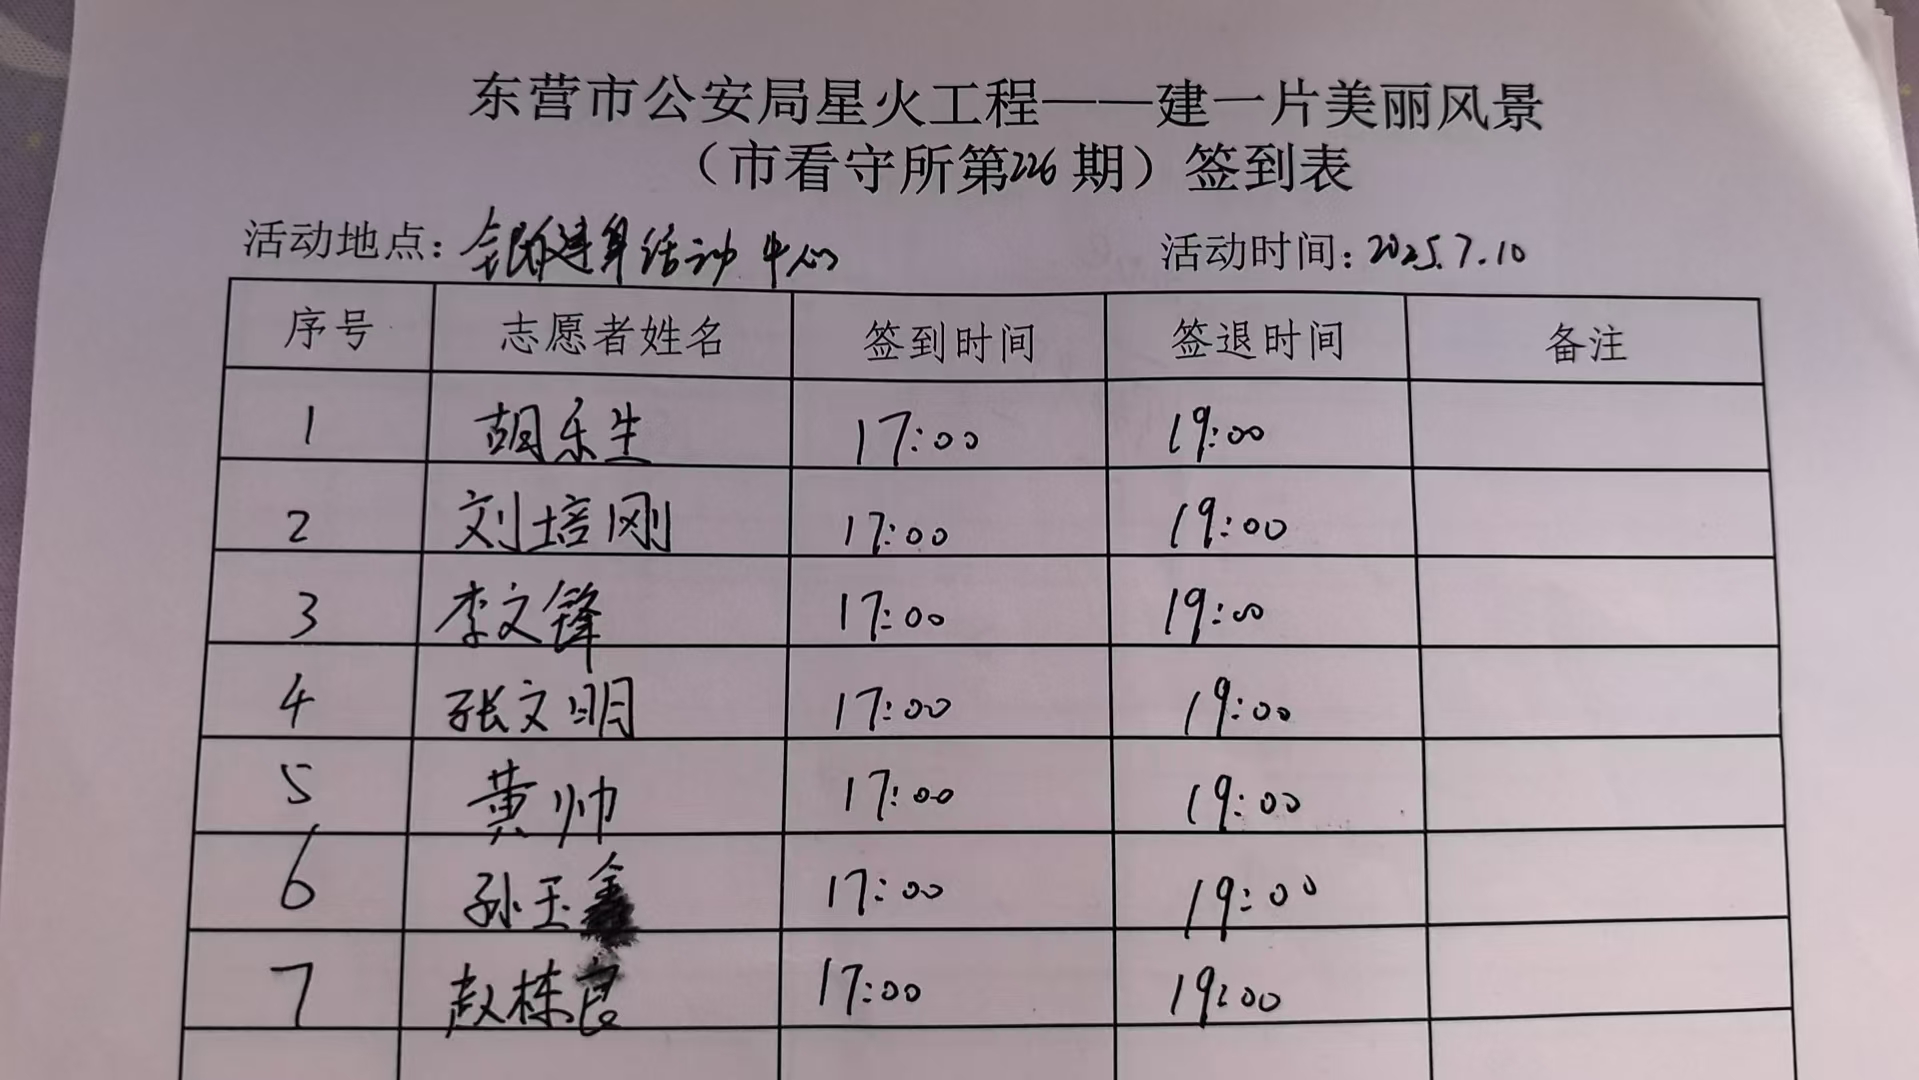 东营市公安局星火工程——建一片美丽风景
（市看守所第226期）签到表
活动地点：全民健身活动中心 活动时间：2025.7.10
序号 志愿者姓名 签到时间 签退时间 备注
1 胡乐生 17:00 19:00
2 刘培刚 17:00 19:00
3 李文锋 17:00 19:00
4 张文明 17:00 19:00
5 黄帅 17:00 19:00
6 孙玉鑫 17:00 19:00
7 赵栋良 17:00 19:00